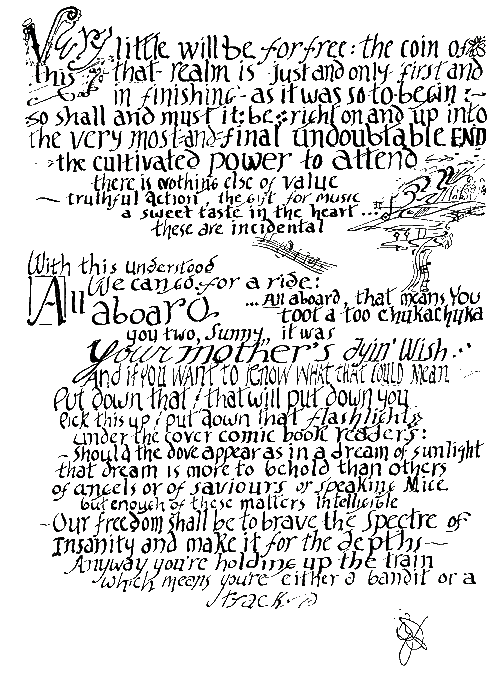 Very little will be for free: the coin of
this that realm is just and only first and
in finishing - as it was so to begin :~
so shall and must it: be: right on and up into
the very most and final undoubtable END
-> the cultivated power to attend
there is nothing else of value
— truthful action, the gift for music
a sweet taste in the heart ...
these are incidental
With this understood
We can go for a ride:
All aboard. ... All aboard, that means You
toot a too chukachuka
you two, Sunny, it was
Your mother's dyin' wish...
And if you want to know what that could mean
Put down that! that will put down you
Pick this up! put down that flashlight
under the cover comic book readers:
~ should the dove appear as in a dream of sunlight
that dream is more to behold than others
of angels or of saviours or speaking Mice
but enough of these matters intelligible
- Our freedom shall be to brave the spectre of
Insanity and make it for the depths —
Anyway you're holding up the train
which means you're either a bandit or a
track.